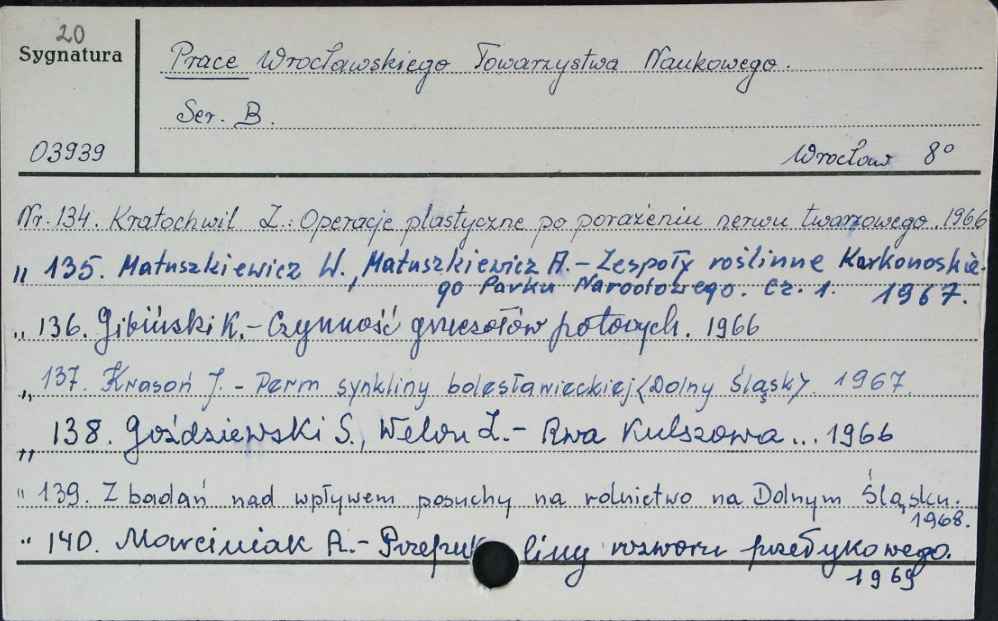 20
Sygnatura
Prace Wrocławskiego Towarzystwa Naukowego.
Ser. B.
03939
Wrocław 8°
Nr. 134. Kratochwil L.: Operacje plastyczne po porażeniu nerwu twarzowego. 1966
" 135. Matuszkiewicz W., Matuszkiewicz A.- Zespoły roślinne Karkonoskie-
go Parku Narodowego. Cz. 1. 1967.
" 136. Gibiński K.- Czynność gruczołów potowych. 1966
" 137. Krasoń J. - Perm synkliny bolesławieckiej <Dolny Śląsk> 1967.
" 138. Goździewski S., Welon Z.- Rwa Kulszowa... 1966
" 139. Z badań nad wpływem posuchy na rolnictwo na Dolnym Śląsku.
1968.
" 140. Marciniak A.- Przepukliny rozworu przełykowego.
1969